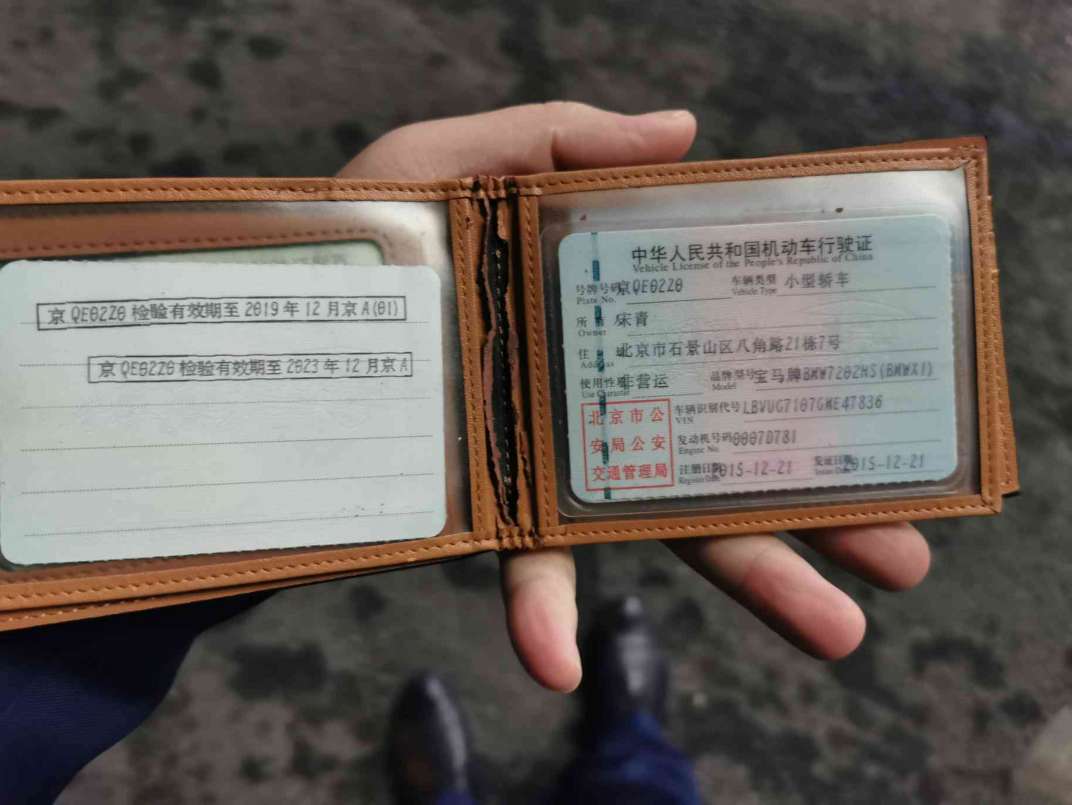 京QE02Z0检验有效期至2019年12月京A(01)
京QE02Z0检验有效期至2023年12月京A
中华人民共和国机动车行驶证
Vehicle License of the People's Republic of China
号牌号码 京QE02Z0 车辆类型 小型轿车
Plate No. Vehicle Type
所 宋青
Owner
住 北京市石景山区八角路21栋7号
Address
使用性质 非营运 品牌型号 宝马牌BMW7202HS(BMWX1)
Use Character Model
北京市公
安局公安
交通管理局
车辆识别代号 LBVUG7107GME47836
VIN
发动机号码 0007D781
Engine No.
注册日期 2015-12-21 发证日期 2015-12-21
Register Date Issue Date